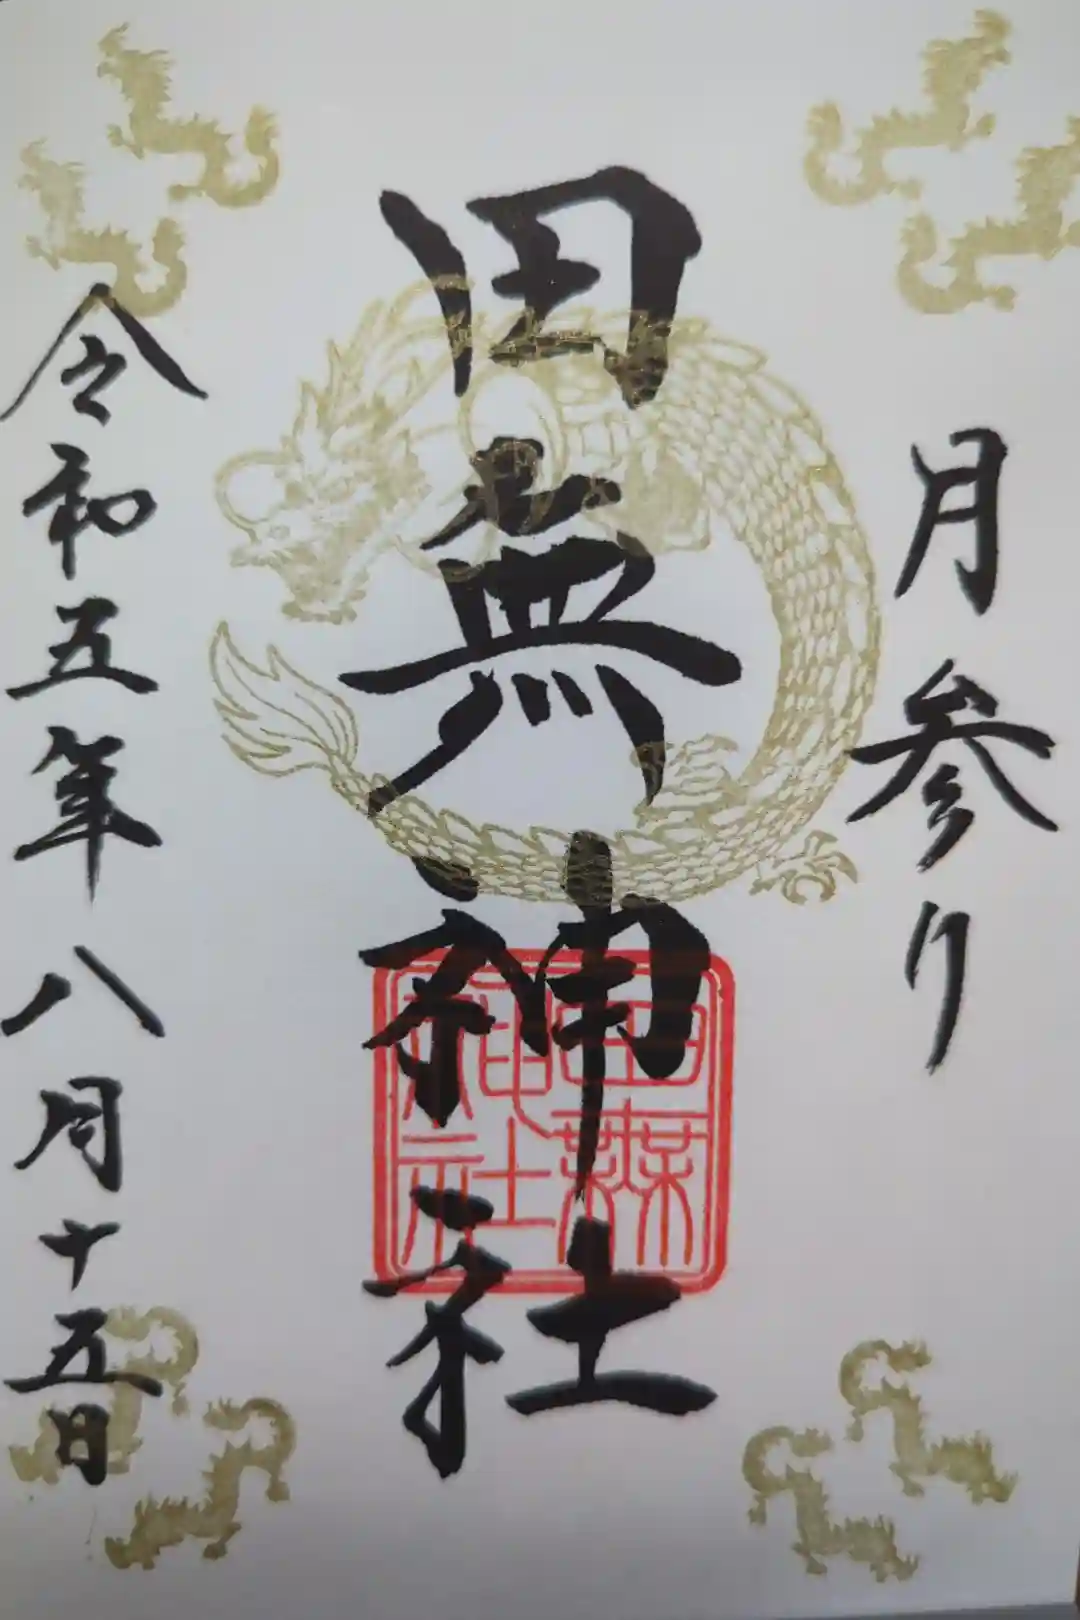 月参り
田無神社
田無神社
令和五年八月十五日